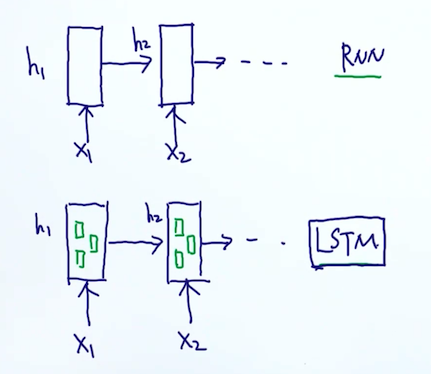 h₁ h₂ --- RNN
x₁ x₂
h₁ h₂ - . LSTM
x₁ x₂